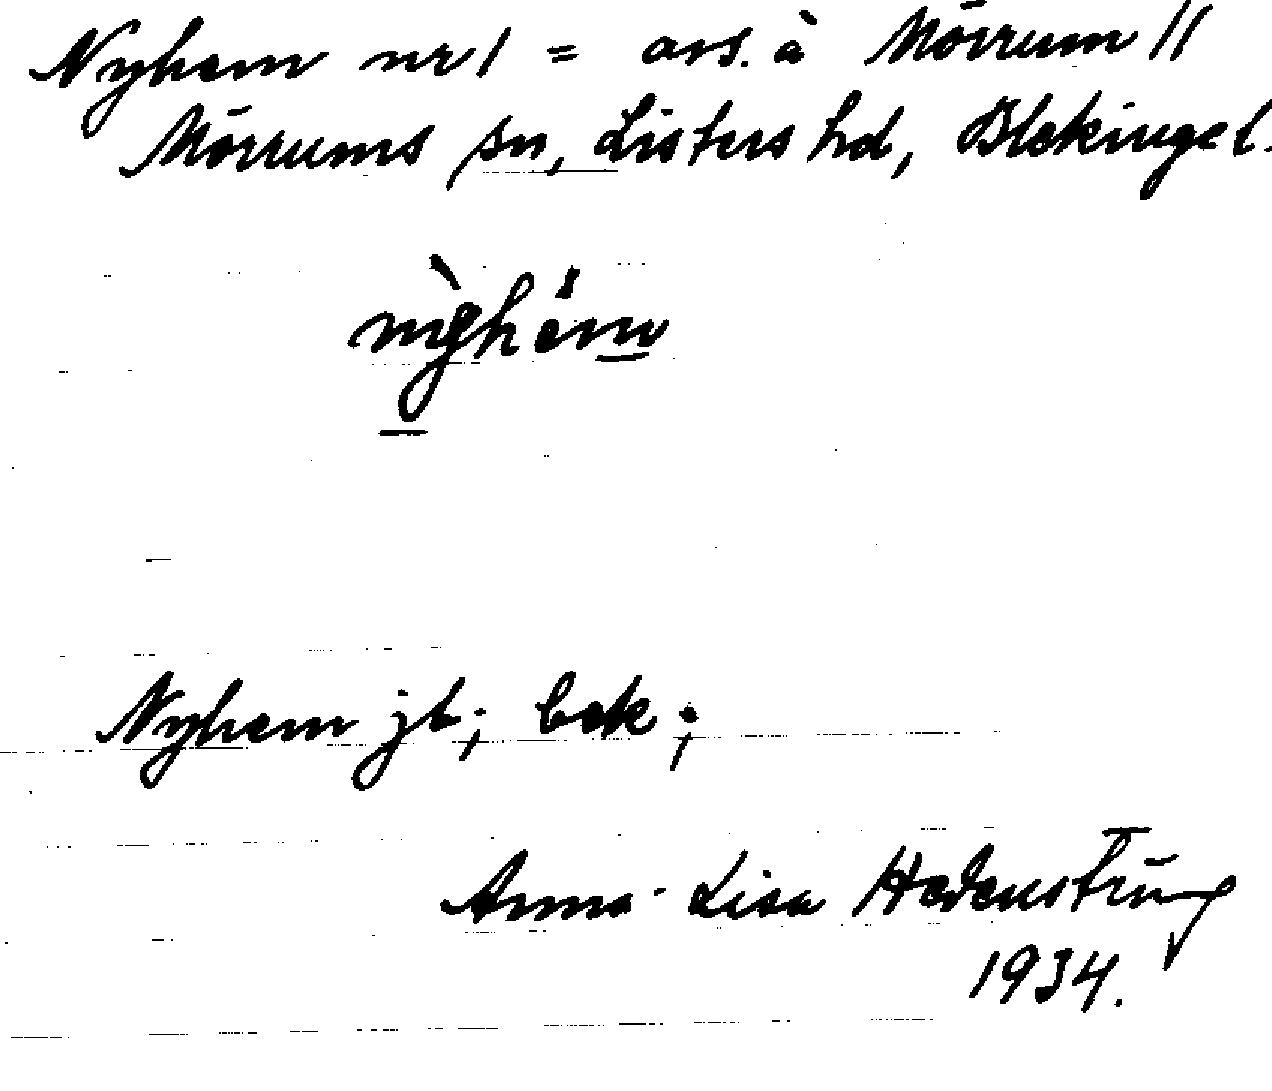 Nyhem nr 1 = avs. à Mörrum 11
Mörrums sn, Listers hd, Blekinge l.
Nyhem jb; bek;
Anna-Lisa Hedenstrüg
1934.